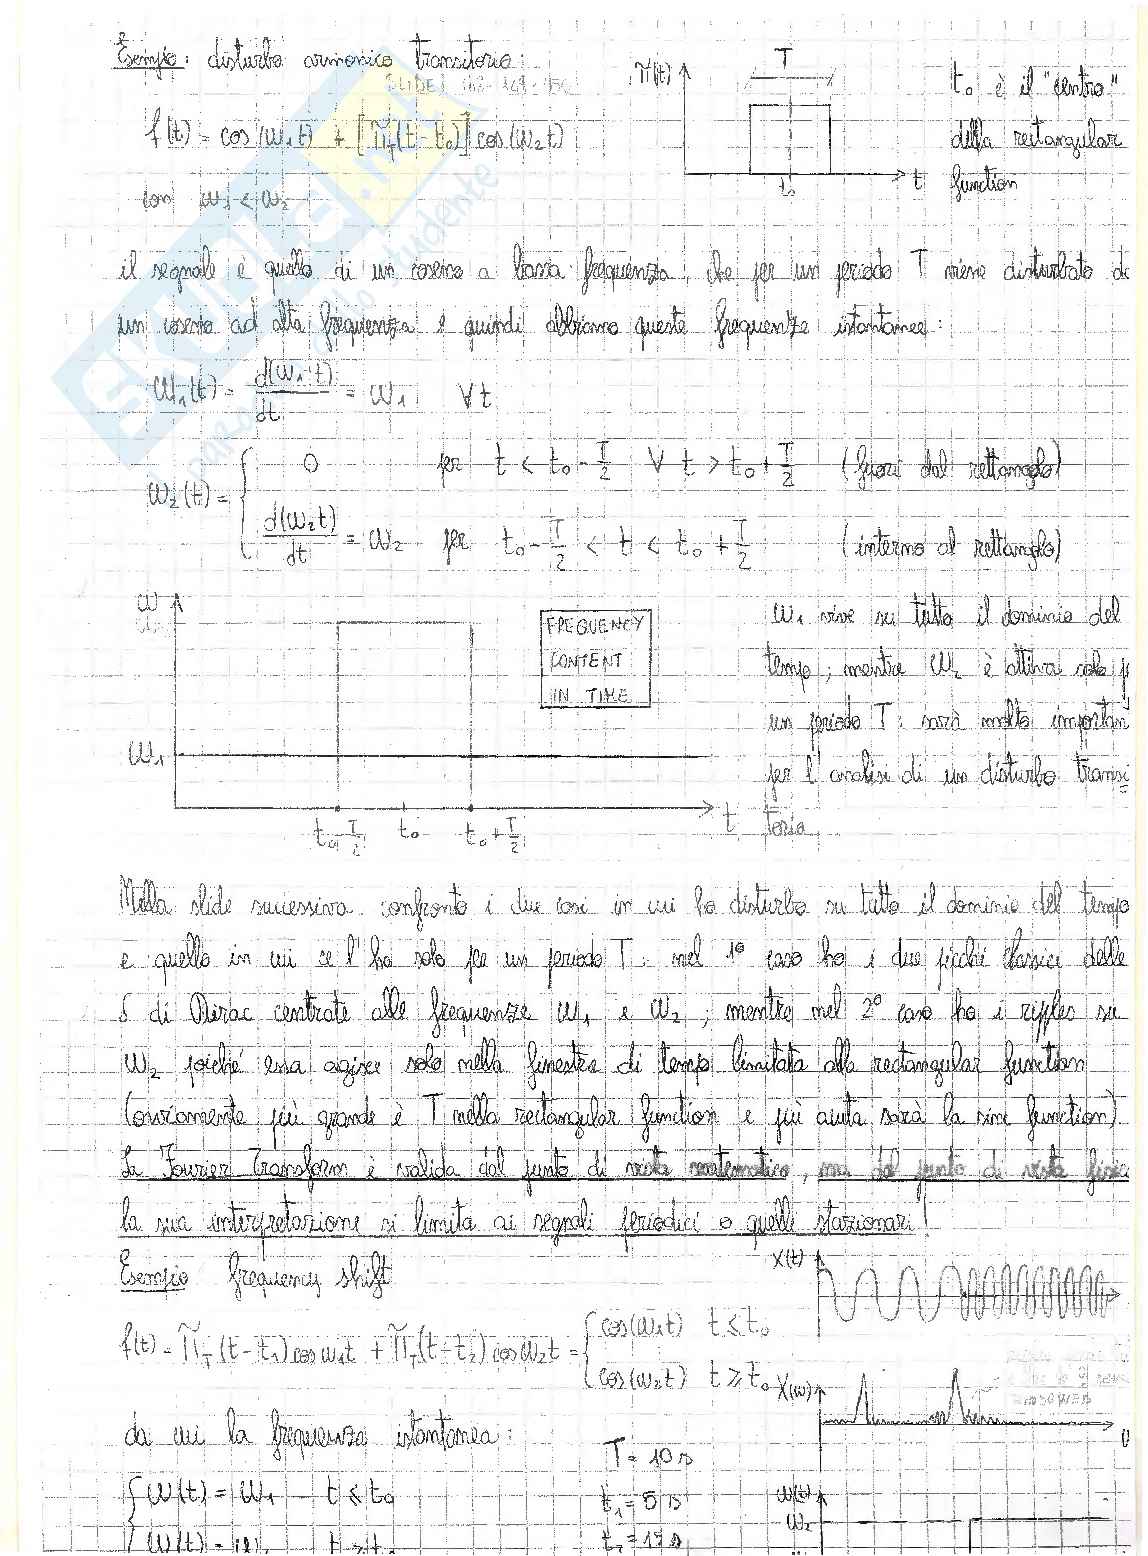 Esempio: disturbo armonico transitorio:
f(t) = cos(ω₁t) + [Π̃_T(t-t₀)] cos(ω₂t)
con ω₁ < ω₂
Π(t)
T
t₀
t
t₀ è il "centro"
della rectangular
function
il segnale è quello di un coseno a bassa frequenza, che per un periodo T viene disturbato da
un coseno ad alta frequenza e quindi abbiamo queste frequenze istantanee:
ω₁(t) = d(ω₁t)/dt = ω₁ ∀t
ω₂(t) = { 0 per t < t₀ - T/2 ∀ t > t₀ + T/2 (fuori dal rettangolo)
d(ω₂t)/dt = ω₂ per t₀ - T/2 < t < t₀ + T/2 (interno al rettangolo)
ω
ω₁
t₀ - T/2
t₀
t₀ + T/2
t
FREQUENCY
CONTENT
IN TIME
ω₁ vive su tutto il dominio del
tempo, mentre ω₂ è attiva solo p
un periodo T: sarà molto importan
per l'analisi di un disturbo transi
torio
Nella slide successiva confronto i due casi in cui ho disturbo su tutto il dominio del tempo
e quello in cui ce l'ho solo per un periodo T: nel 1° caso ho i due picchi classici delle
δ di Dirac centrate alle frequenze ω₁ e ω₂, mentre nel 2° caso ho i ripples su
ω₂ poiché essa agisce solo nella finestra di tempo limitata alla rectangular function
(ovviamente più grande è T nella rectangular function e più acuta sarà la sinc function)
La Fourier Transform è valida dal punto di vista matematico, ma dal punto di vista fisico
la sua interpretazione si limita ai segnali periodici o quelli stazionari!
Esempio frequency shift
X(t)
f(t) = Π̃_T(t-t₁) cos ω₁t + Π̃_T(t-t₂) cos ω₂t = { cos(ω₁t) t ≤ t₀
cos(ω₂t) t ≥ t₀
X(ω)
da cui la frequenza istantanea:
{ ω(t) = ω₁ t ≤ t₀
ω(t) = ω₂ t ≥ t₀
T = 10 s
t₁ = 5 s
t₂ = 17 s
ω(t)
ω₂
SKUOLA.NET
il paradiso dello studente